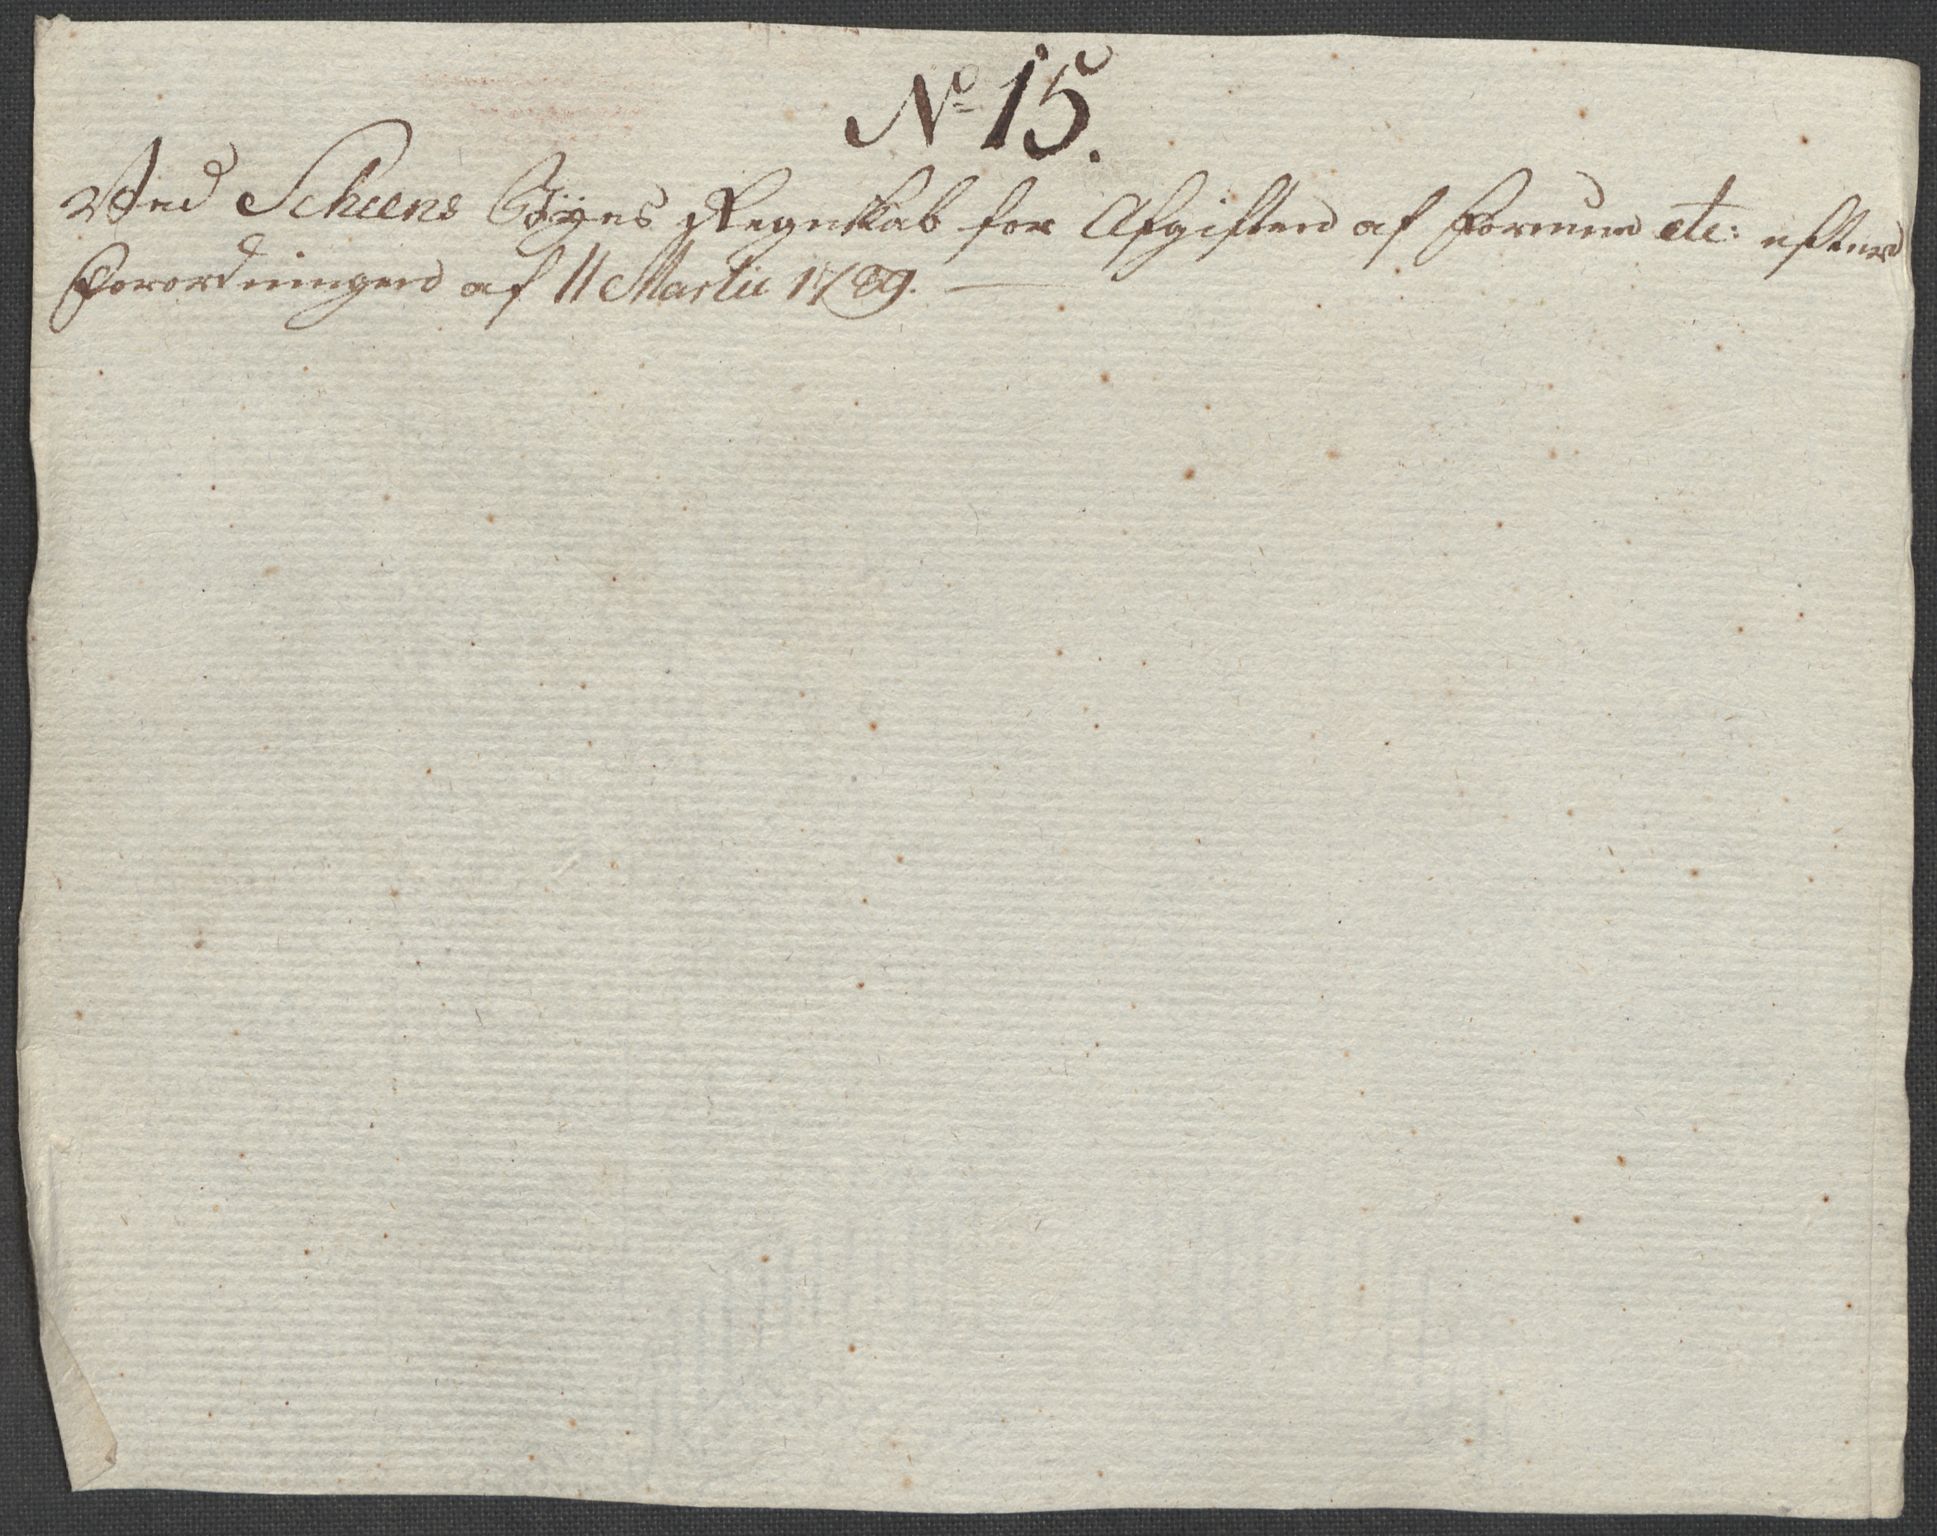 No 15.
Ved Scheens Byes Regnskab for Afgiften af Formue etc: efter
Forordningen af 11 Martii 1789.